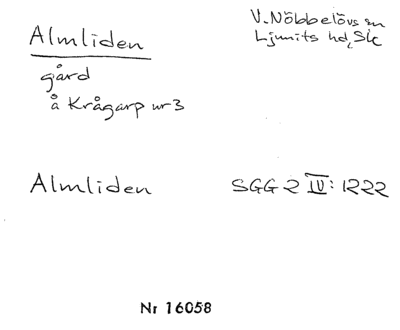 Almliden
V. Nöbbelövs sn
Ljunits hd, Sk
gård
å Krågarp nr 3
Almliden
SGG 2 IV: 1222
Nr 16058